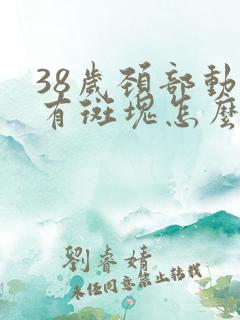 38歲頚部動
有斑塊怎麽
劉睿婧
未经同意禁止转载